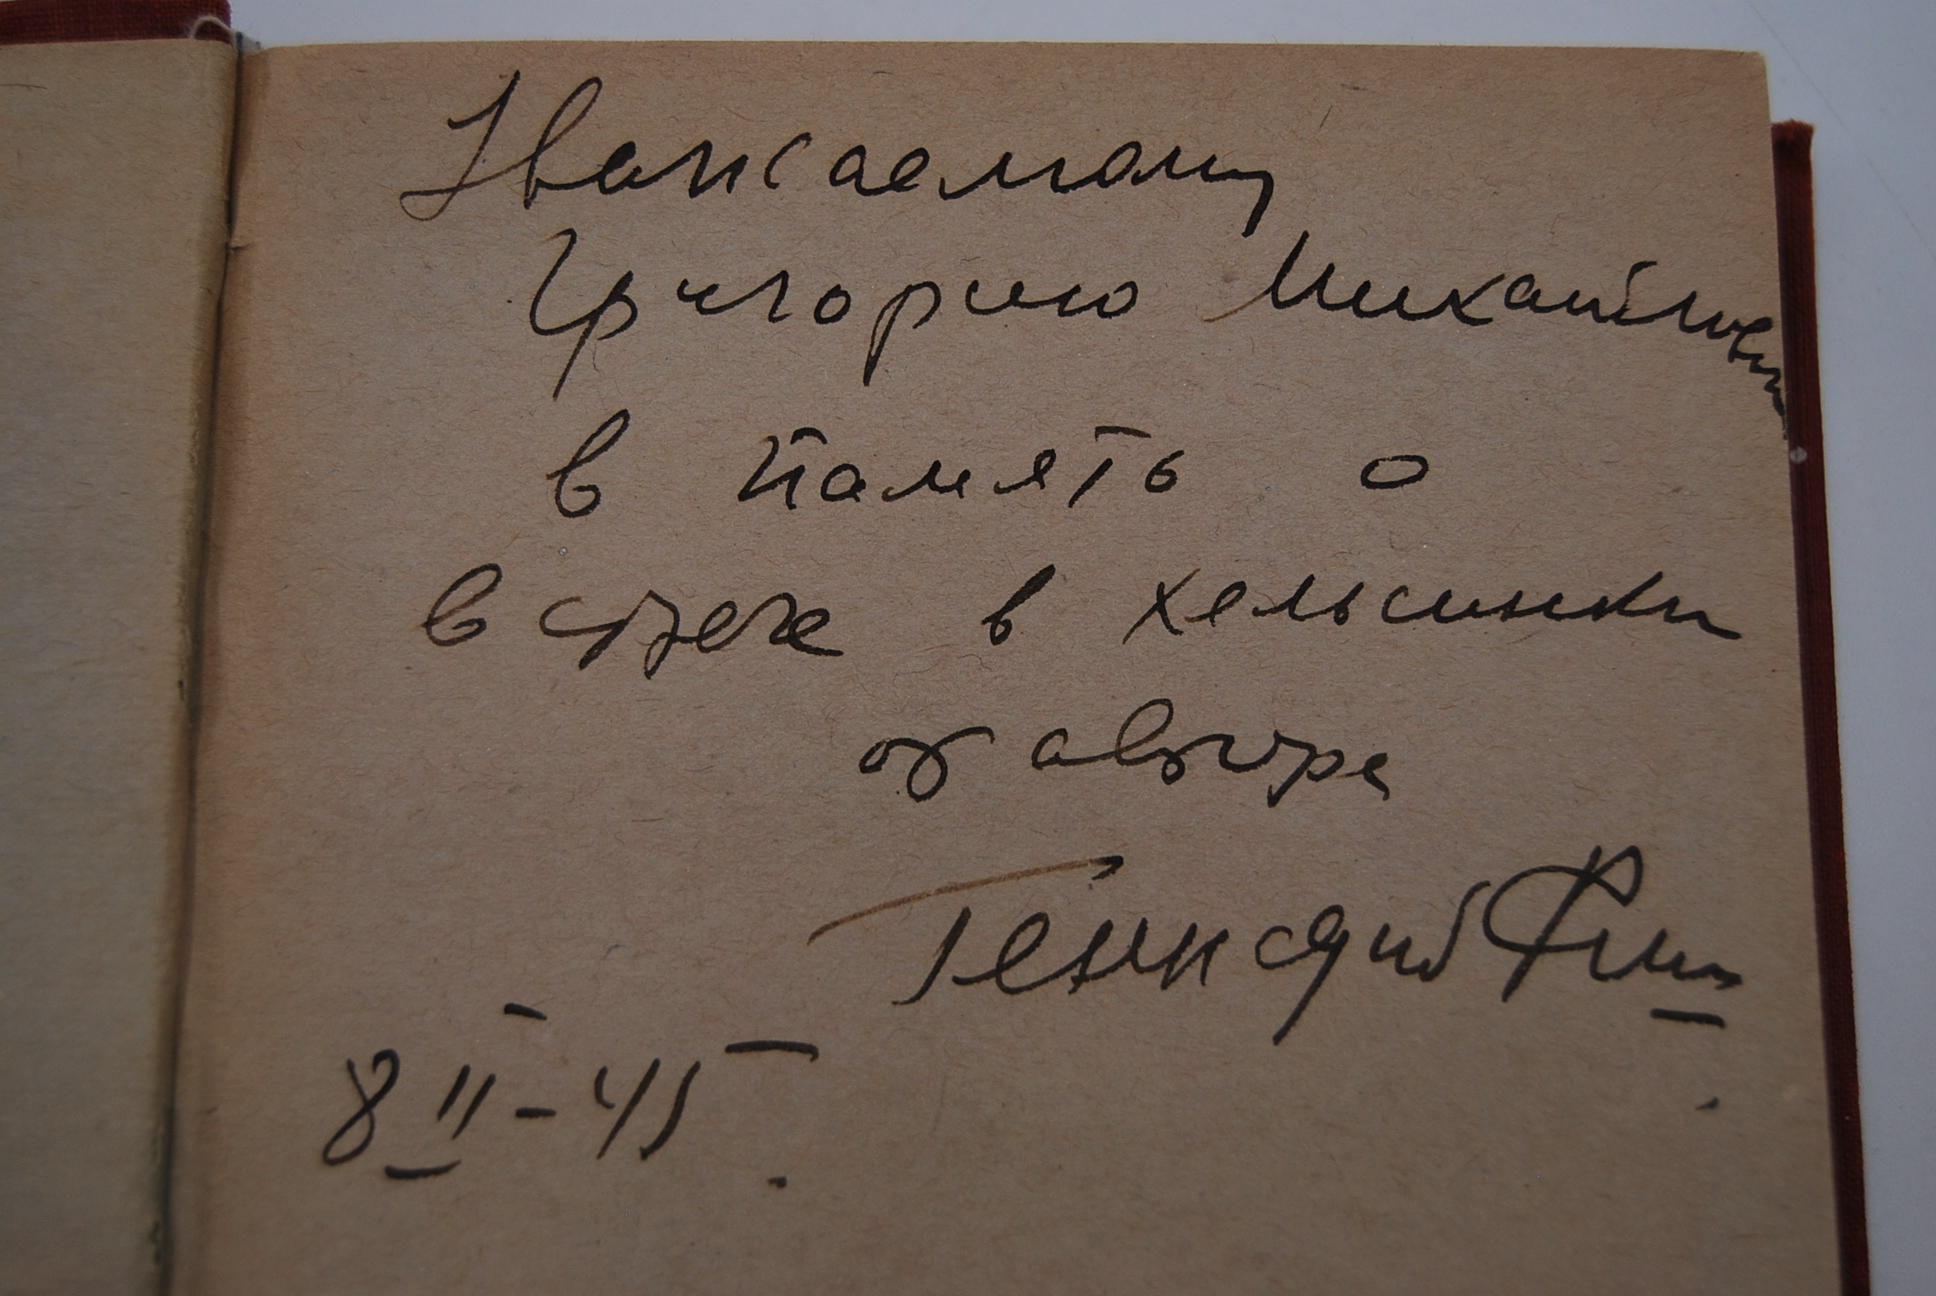 Уважаемому
Григорию Михайлович
в память о
встрече в Хельсинки
от автора
Геннадий Фиш
8 II - 45